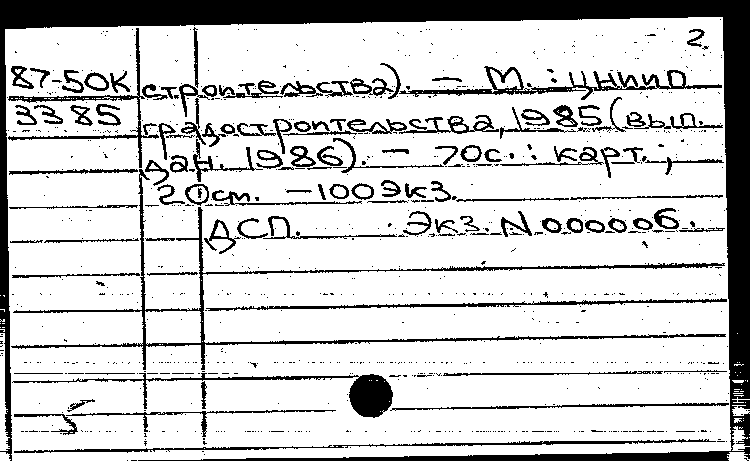 2
87-50К строительства). — М. : ЦНИИП
3385 градостроительства, 1985 (вып.
дан. 1986). — 70с. : карт. ;
20 см. — 100 экз.
ДСП. Экз. N 000006.
5